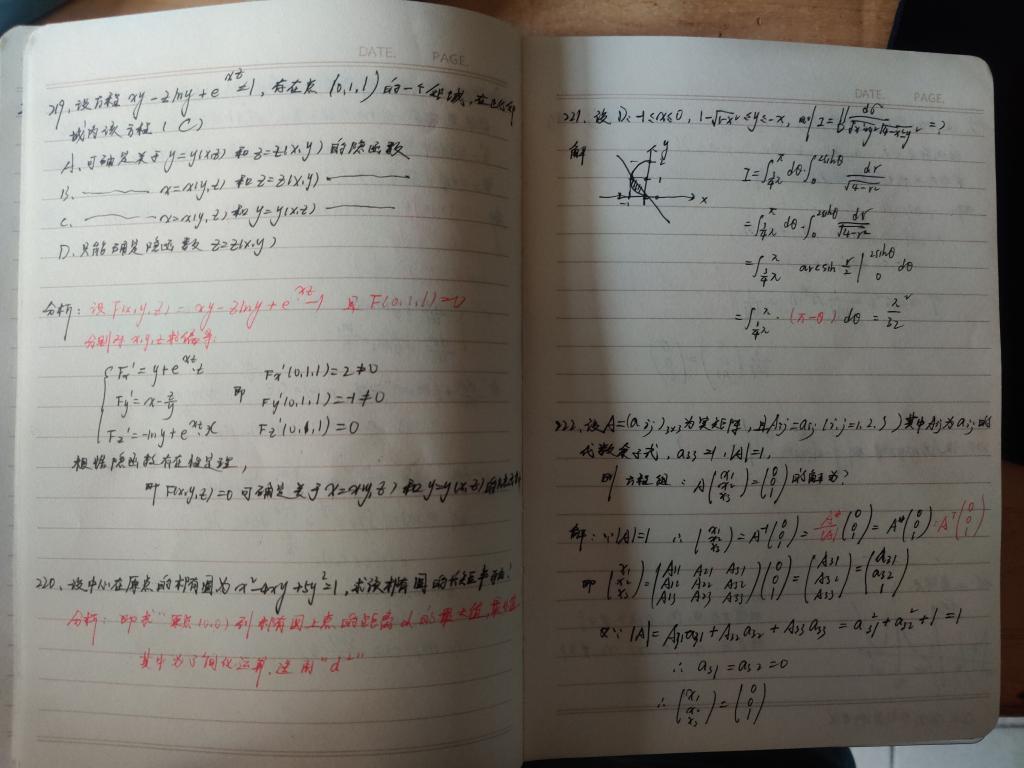 DATE. PAGE.
219. 设方程 xy-zlny+e^{xz}=1, 存在点 (0,1,1) 的一个邻域, 在此邻
域内该方程 ( C )
A. 可确定关于 y=y(x,z) 和 z=z(x,y) 的隐函数
B. ——— x=x(y,z) 和 z=z(x,y) ———
C. ——— x=x(y,z) 和 y=y(x,z) ———
D. 只能确定隐函数 z=z(x,y)
分析: 设 F(x,y,z) = xy-zlny+e^{xz}-1 且 F(0,1,1)=0
分别对 x,y,z 求偏导:
Fx'=y+e^{xz}·z 即 Fx'(0,1,1)=2≠0
Fy'=x-z/y Fy'(0,1,1)=-1≠0
Fz'=-lny+e^{xz}·x Fz'(0,1,1)=0
根据隐函数存在性定理,
即 F(x,y,z)=0 可确定关于 x=x(y,z) 和 y=y(x,z) 的
220. 设中心在原点的椭圆为 x²-4xy+5y²=1, 求该椭圆的长短半轴.
分析: 即求"原点(0,0)到椭圆上点的距离 d 的最大值,最小值
其中为了简化运算,选用 "d²"
DATE. PAGE.
221. 设 D: -1≤x≤0, 1-√(1-x²)≤y≤-x, 则 I=∬_D dσ/(√(x²+y²)√(4-x²-y²))=?
解 y 2 1 -1 x I=∫_{3/4π}^{π} dθ·∫_0^{2sinθ} dr/√(4-r²)
=∫_{3/4π}^{π} dθ·∫_0^{2sinθ} dr/√(4-r²)
=∫_{3/4π}^{π} arcsin r/2 |_0^{2sinθ} dθ
=∫_{3/4π}^{π}·(π-θ) dθ = π²/32
222. 设 A=(aij)3×3 为实矩阵, 且 Aij=aij (i,j=1,2,3) 其中 Aij 为 aij 的
代数余子式, a33=1, |A|=1,
则方程组: A(x1 x2 x3)=(0 0 1) 的解为?
解: ∵|A|=1 ∴ (x1 x2 x3)=A^{-1}(0 0 1)=A*/|A| (0 0 1)=A*(0 0 1)=A^T(0 0 1)
即 (x1 x2 x3)=(A11 A21 A31 A12 A22 A32 A13 A23 A33)(0 0 1)=(A31 A32 A33)=(a31 a32 1)
又∵ |A|=A31a31+A32a32+A33a33=a31²+a32²+1=1
∴ a31=a32=0
∴ (x1 x2 x3)=(0 0 1)